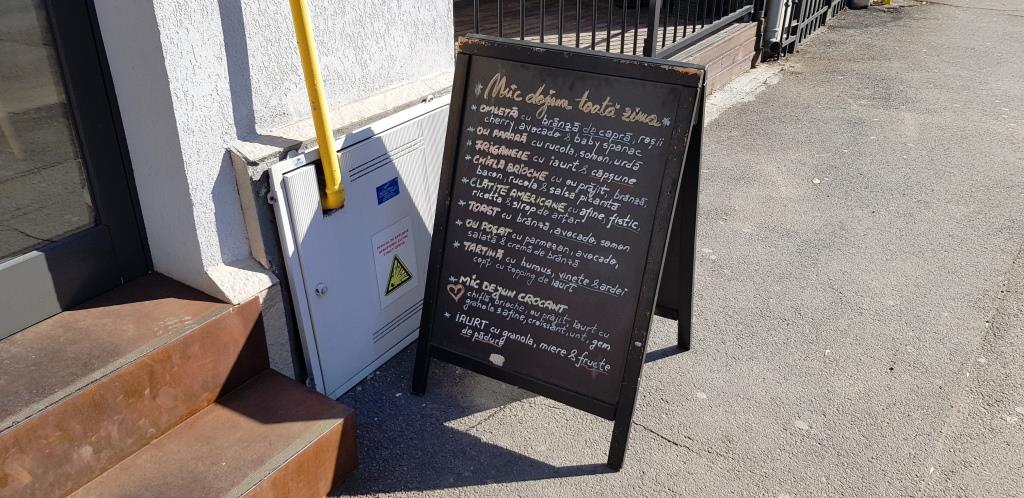 * Mic dejun toată ziua *
* OMLETĂ cu brânză de capră, roșii
cherry, avocado & baby spanac
* OU PAPARĂ cu rucola, somon, urdă
* FRIGĂNELE cu iaurt & căpșune
* CHIFLĂ BRIOCHE cu ou prăjit, brânză,
bacon, rucola & salsa picantă
* CLĂTITE AMERICANE cu afine, fistic,
ricotta & sirop de arțar
* TOAST cu brânză, avocado, somon
* OU POȘAT cu parmezan, avocado,
salată & cremă de brânză
* TARTINĂ cu humus, vinete & ardei
copt cu topping de iaurt
* MIC DEJUN CROCANT
chiflă brioche, ou prăjit, iaurt cu
granola & afine, croissant, unt, gem
* IAURT cu granola, miere & fructe
de pădure